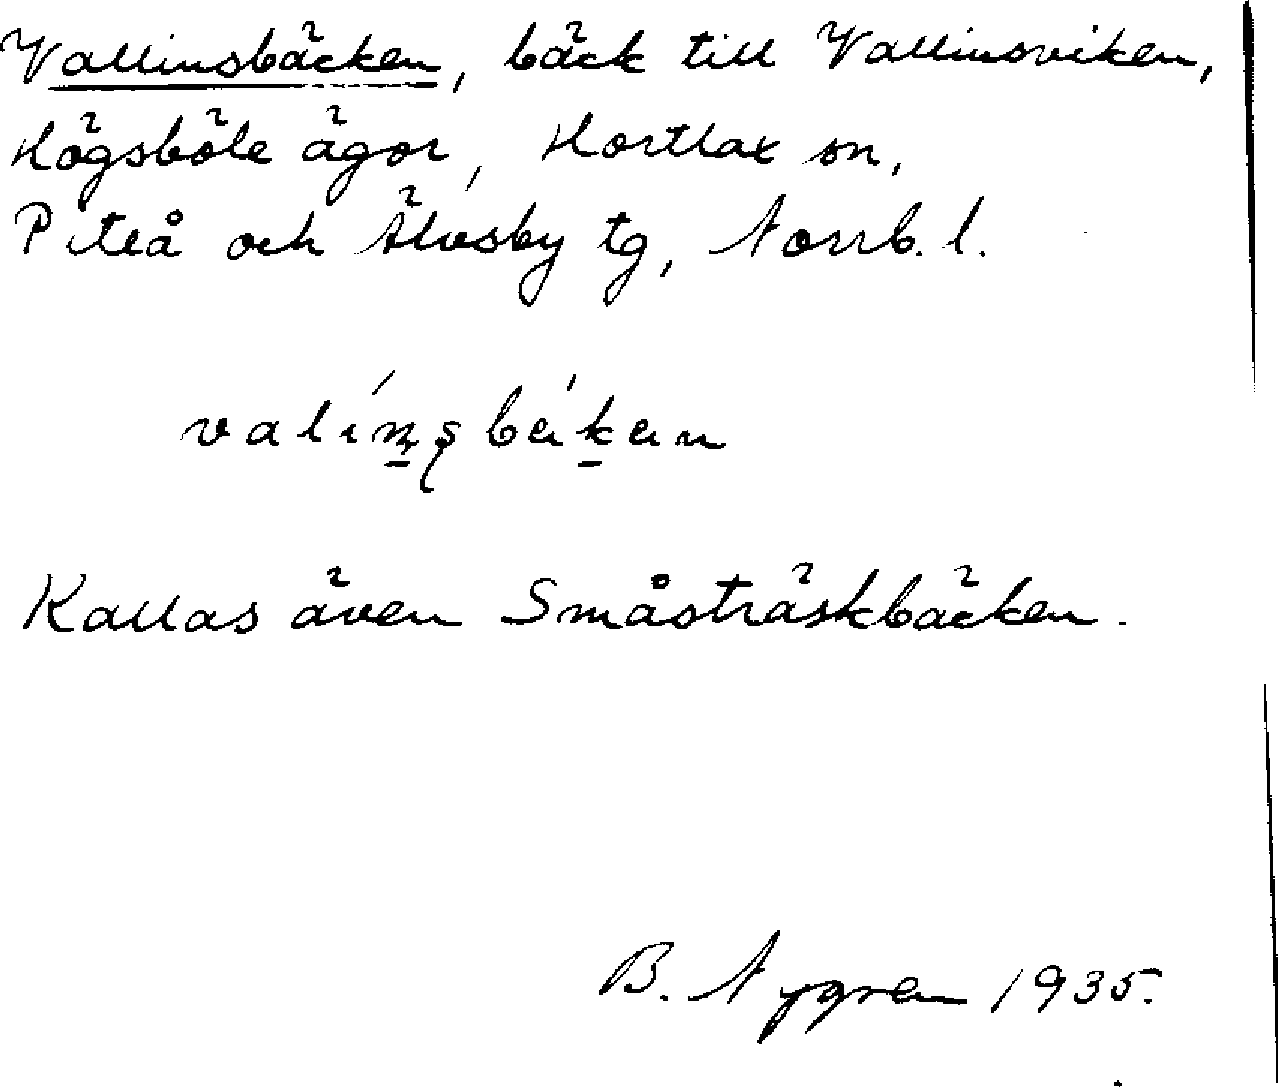 Vallinsbäcken, bäck till Vallinsviken,
Högsböle ägor, Hortlax sn,
Piteå och Älvsby tg, Norrb. l.
Kallas även Småsträskbäcken.
B. Nygren 1935.